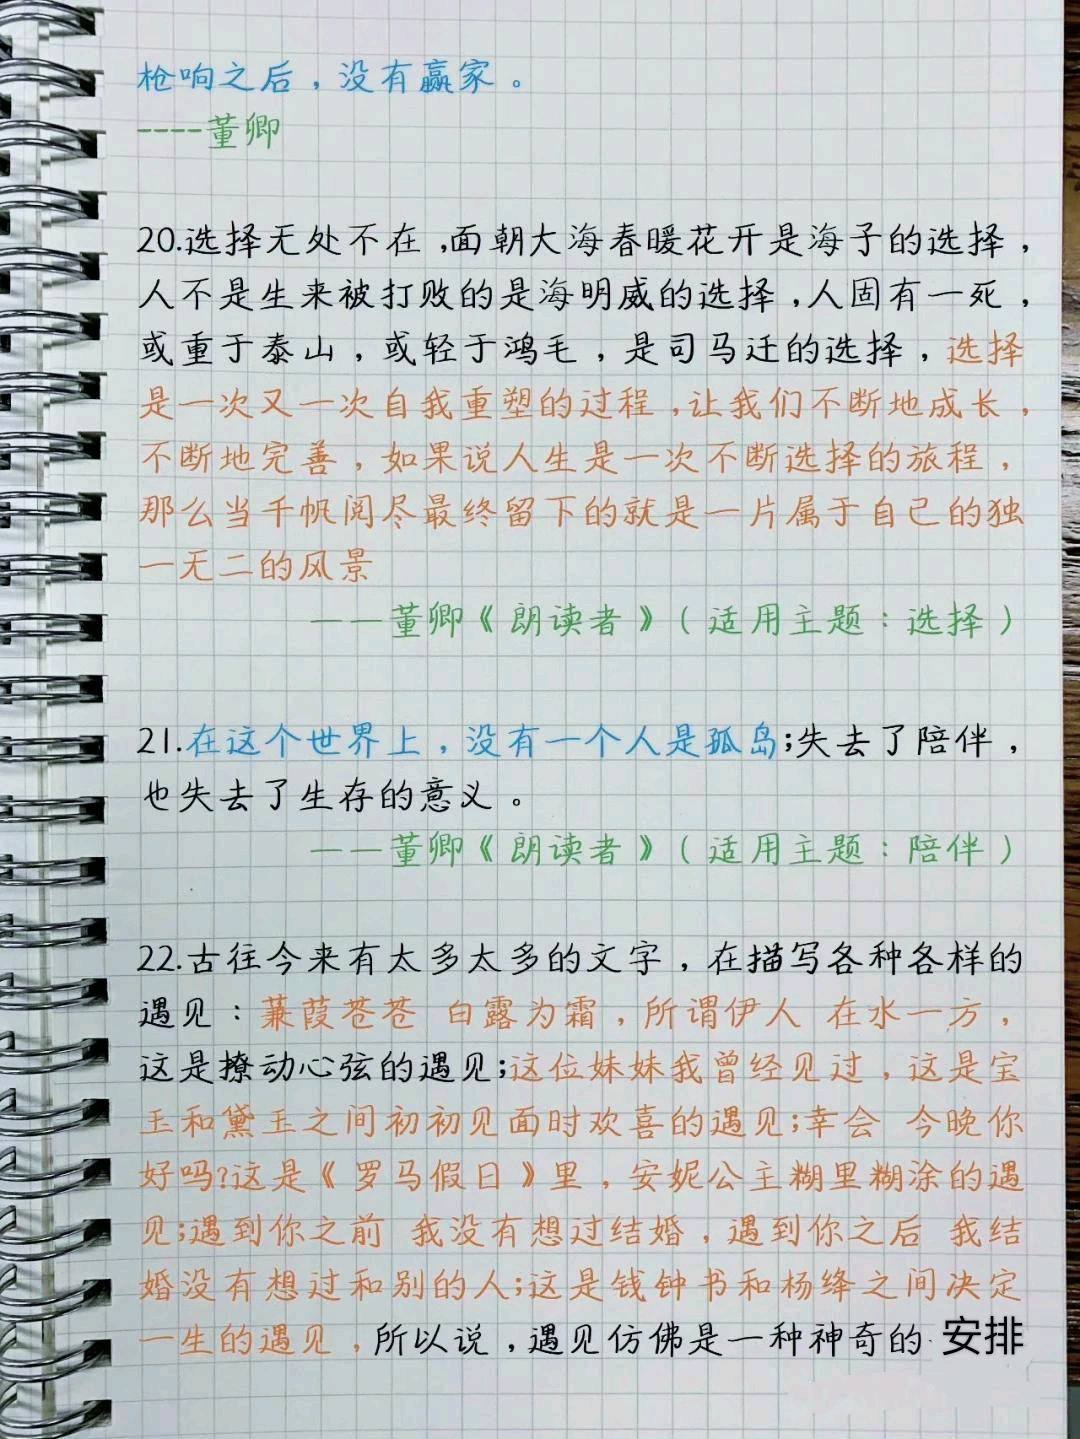 枪响之后，没有赢家。
----董卿
20.选择无处不在，面朝大海春暖花开是海子的选择，
人不是生来被打败的是海明威的选择，人固有一死，
或重于泰山，或轻于鸿毛，是司马迁的选择，选择
是一次又一次自我重塑的过程，让我们不断地成长，
不断地完善，如果说人生是一次不断选择的旅程，
那么当千帆阅尽最终留下的就是一片属于自己的独
一无二的风景
——董卿《朗读者》(适用主题：选择)
21.在这个世界上，没有一个人是孤岛;失去了陪伴，
也失去了生存的意义。
——董卿《朗读者》(适用主题：陪伴)
22.古往今来有太多太多的文字，在描写各种各样的
遇见：蒹葭苍苍 白露为霜，所谓伊人 在水一方，
这是撩动心弦的遇见;这位妹妹我曾经见过，这是宝
玉和黛玉之间初初见面时欢喜的遇见;幸会 今晚你
好吗?这是《罗马假日》里，安妮公主糊里糊涂的遇
见;遇到你之前 我没有想过结婚，遇到你之后 我结
婚没有想过和别的人;这是钱钟书和杨绛之间决定
一生的遇见，所以说，遇见仿佛是一种神奇的安排